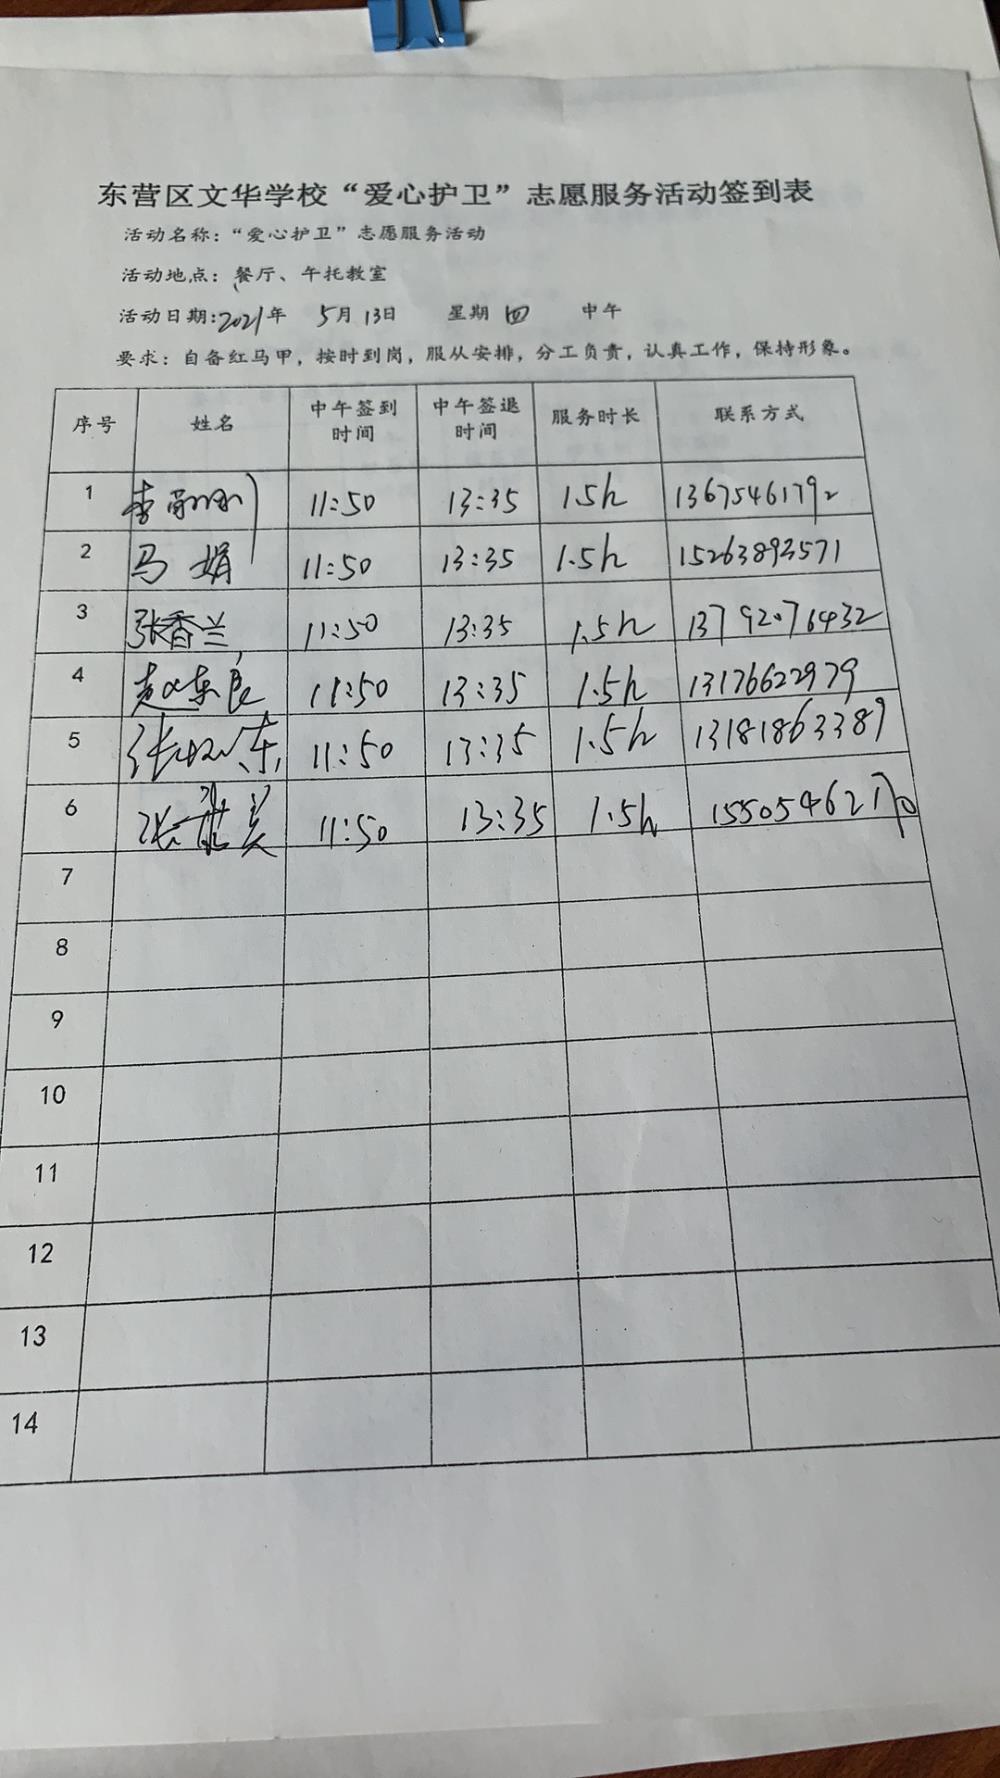 东营区文华学校“爱心护卫”志愿服务活动签到表
活动名称：“爱心护卫”志愿服务活动
活动地点：餐厅、午托教室
活动日期：2021年 5月 13日 星期 四 中午
要求：自备红马甲，按时到岗，服从安排，分工负责，认真工作，保持形象。
序号 姓名 中午签到时间 中午签退时间 服务时长 联系方式
1 李 11:50 13:35 1.5h 13675461792
2 马娟 11:50 13:35 1.5h 15263893571
3 张香兰 11:50 13:35 1.5h 13792076432
4 11:50 13:35 1.5h 13176622979
5 张 东 11:50 13:35 1.5h 13181863389
6 张 美 11:50 13:35 1.5h 155054621
7
8
9
10
11
12
13
14